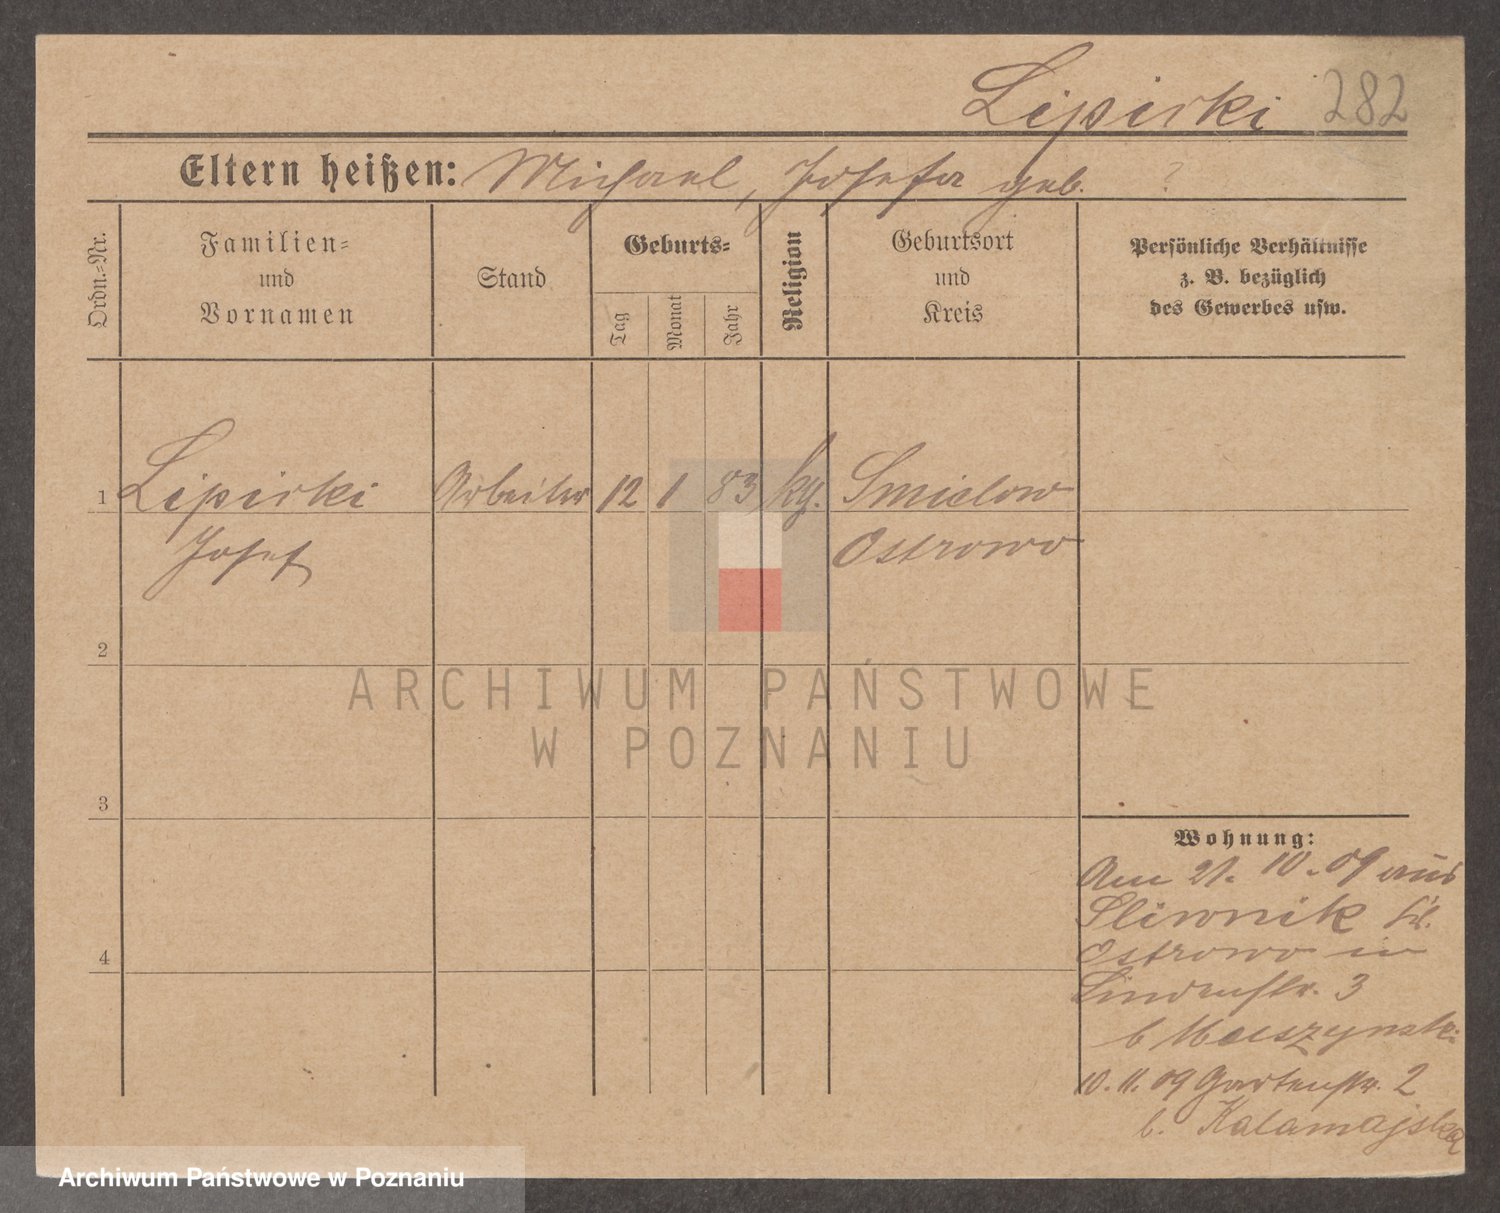 Lipiski 282
Eltern heißen: Michael, Josefa geb. ?
Ordn.=Nr.
Familien=
und
Vornamen
Stand
Geburts=
Tag
Monat
Jahr
Religion
Geburtsort
und
Kreis
Persönliche Verhältnisse
z. B. bezüglich
des Gewerbes usw.
1 Lipiski Arbeiter 12 1 83 kg. Smielow
Josef Ostrowo
2
3
4
Wohnung:
Am 21. 10. 09 aus
Sliwnik Kr.
Ostrowo in
Lindenstr. 3
b
10. 11. 09 Gartenstr. 2
b. Kalamajska
ARCHIWUM PAŃSTWOWE
W POZNANIU
Archiwum Państwowe w Poznaniu